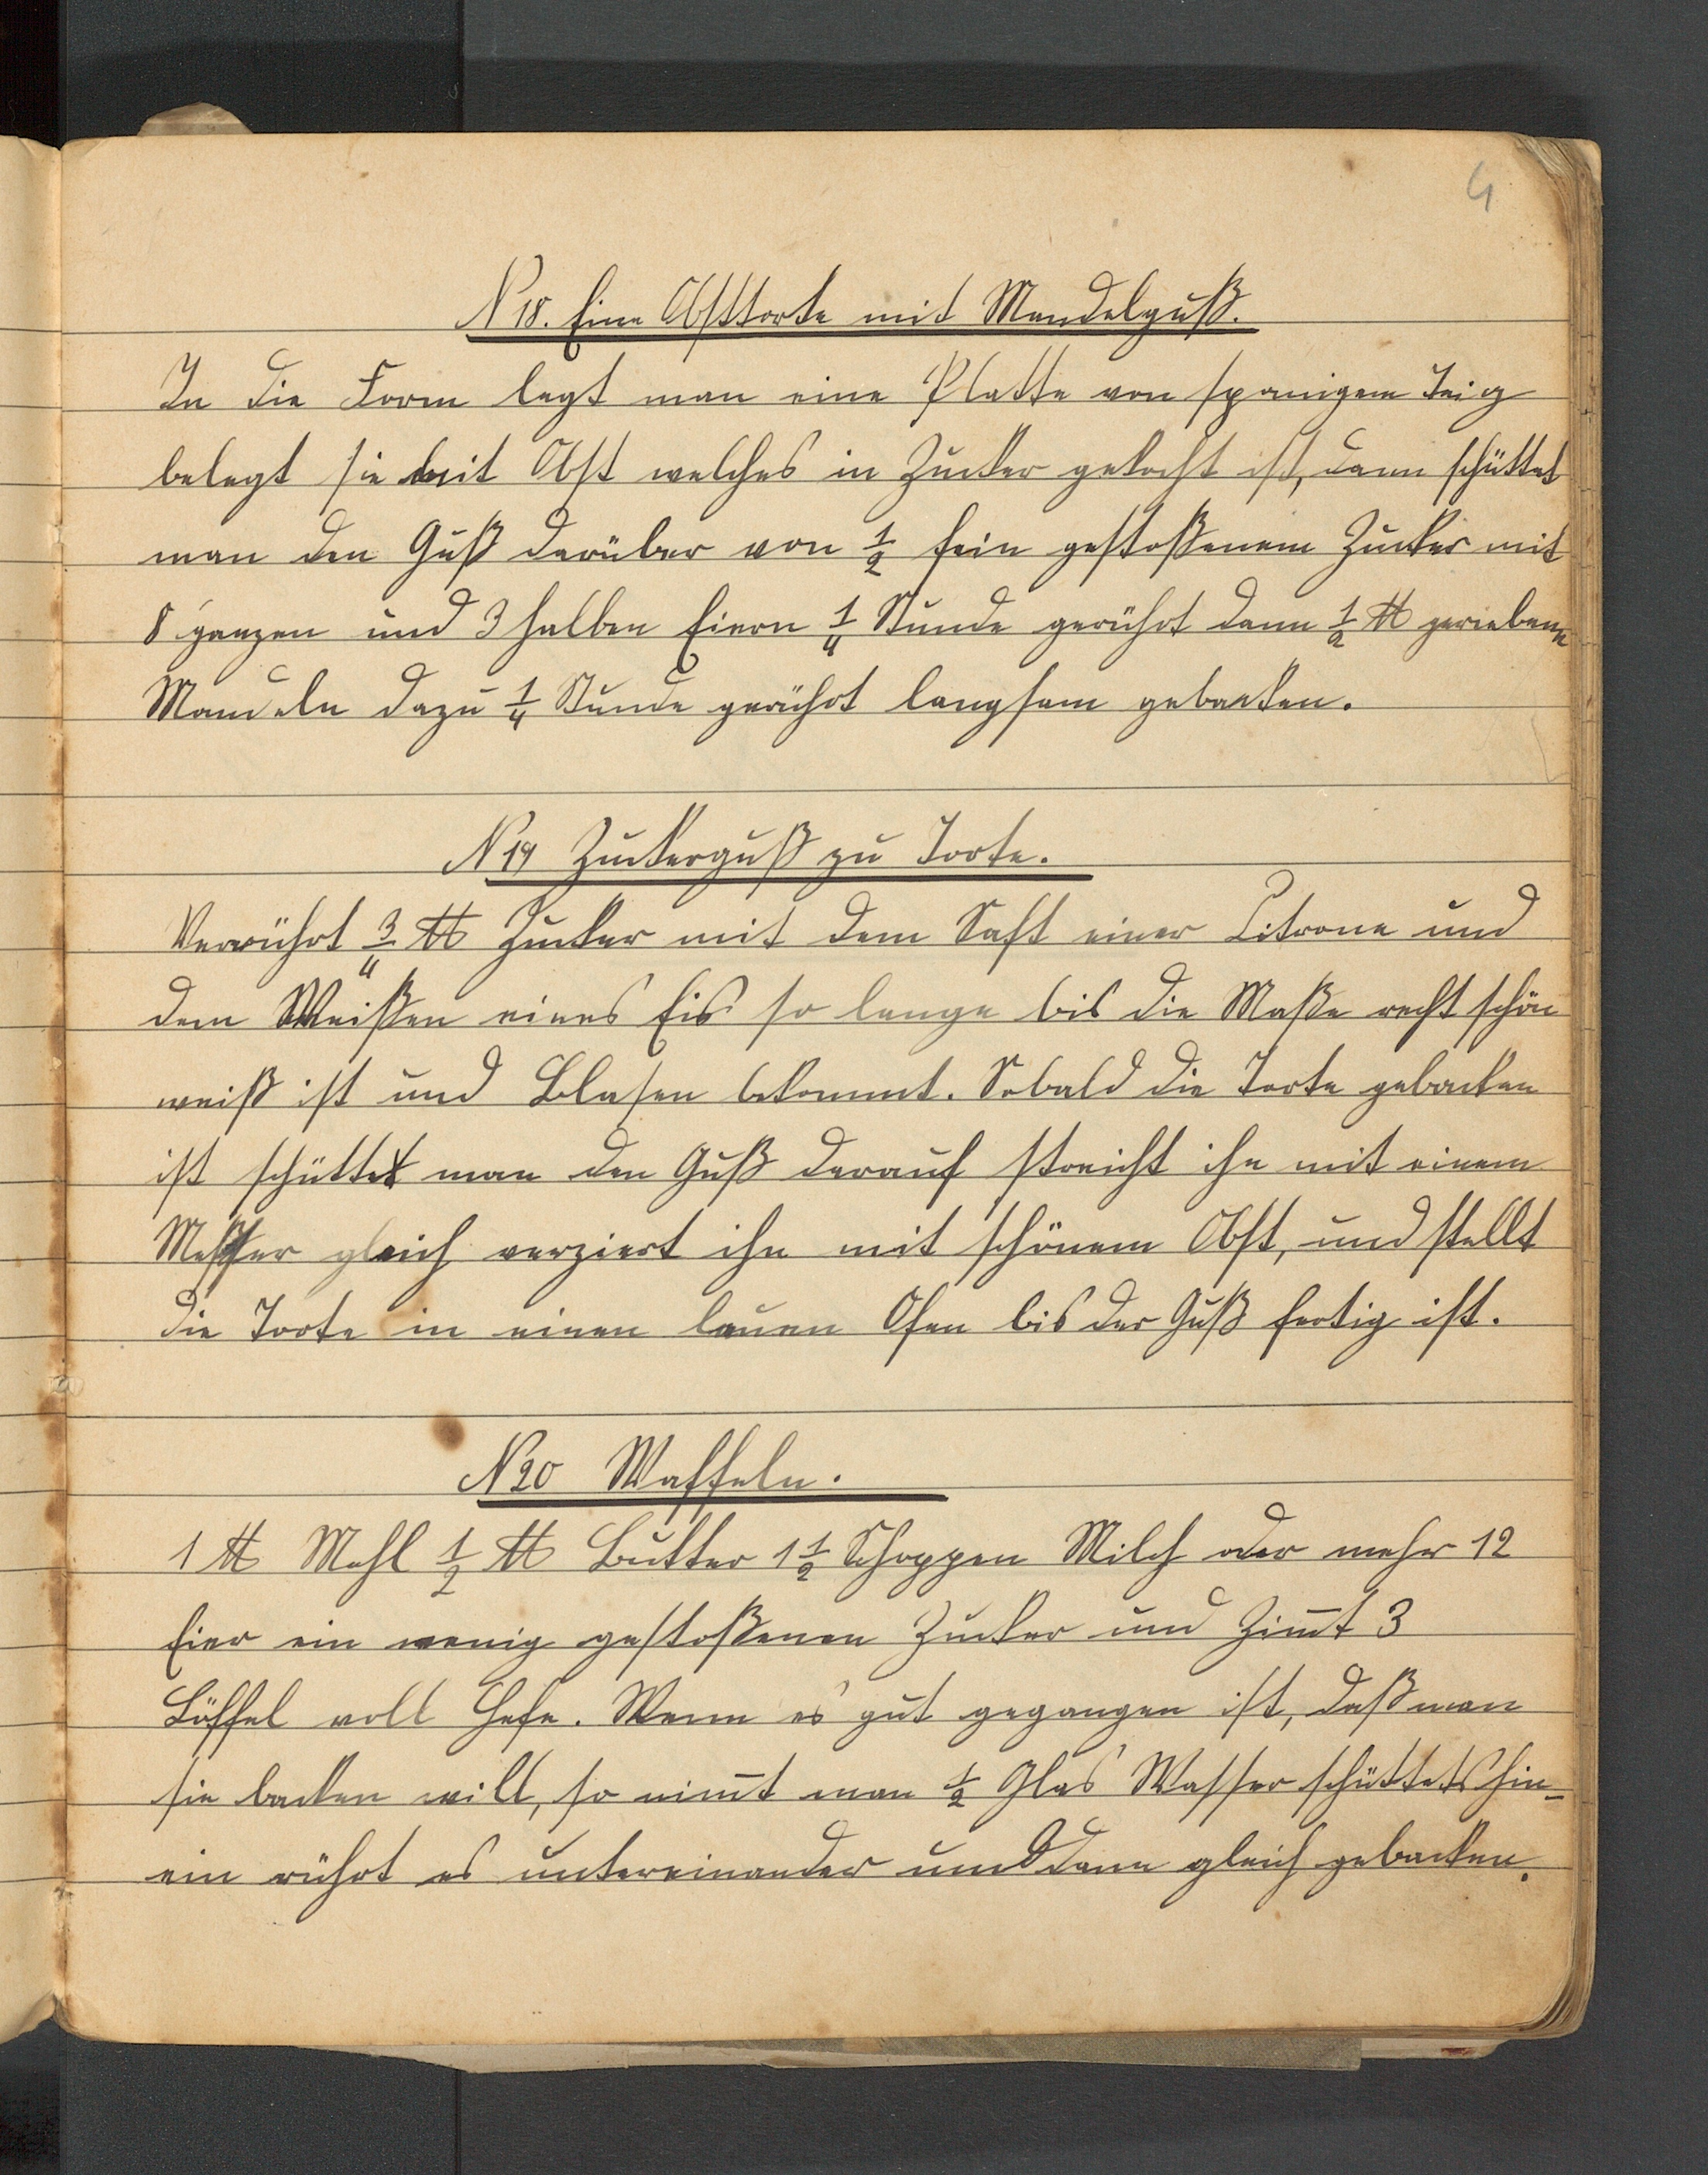 4
N 18. Eine Obsttorte mit Mandelguß.
In die Form legt man eine Platte von spanigem Teig
belegt sie mit Obst welches in Zucker gekocht ist, dann schüttet
man den Guß darüber von 1/2 fein gestoßenem Zucker mit
8 ganzen und 3 halben Eiern 1/4 Stunde gerührt dann 1/2 ℔ geriebene
Mandeln dazu 1/4 Stunde gerührt langsam gebacken.
N 19 Zuckerguß zu Torte.
Verrührt 3/4 ℔ Zucker mit dem Saft einer Citrone und
dem Weißen eines Eis so lange bis die Maße recht schön
weiß ist und Blasen bekommt. Sobald die Torte gebacken
ist schüttet man den Guß darauf streicht ihn mit einem
Messer gleich verziert ihn mit schönem Obst, und stellt
die Torte in einen lauen Ofen bis der Guß fertig ist.
N 20 Waffeln.
1 ℔ Mehl 1/2 ℔ Butter 1 1/2 Schoppen Milch oder mehr 12
Eier ein wenig gestoßenen Zucker und Zim̅t 3
Löffel voll Hefe. Wenn es gut gegangen ist, daß man
sie backen will, so nim̅t man 1/2 Glas Wasser schüttets hin-
ein rührt es untereinander und dann gleich gebacken.